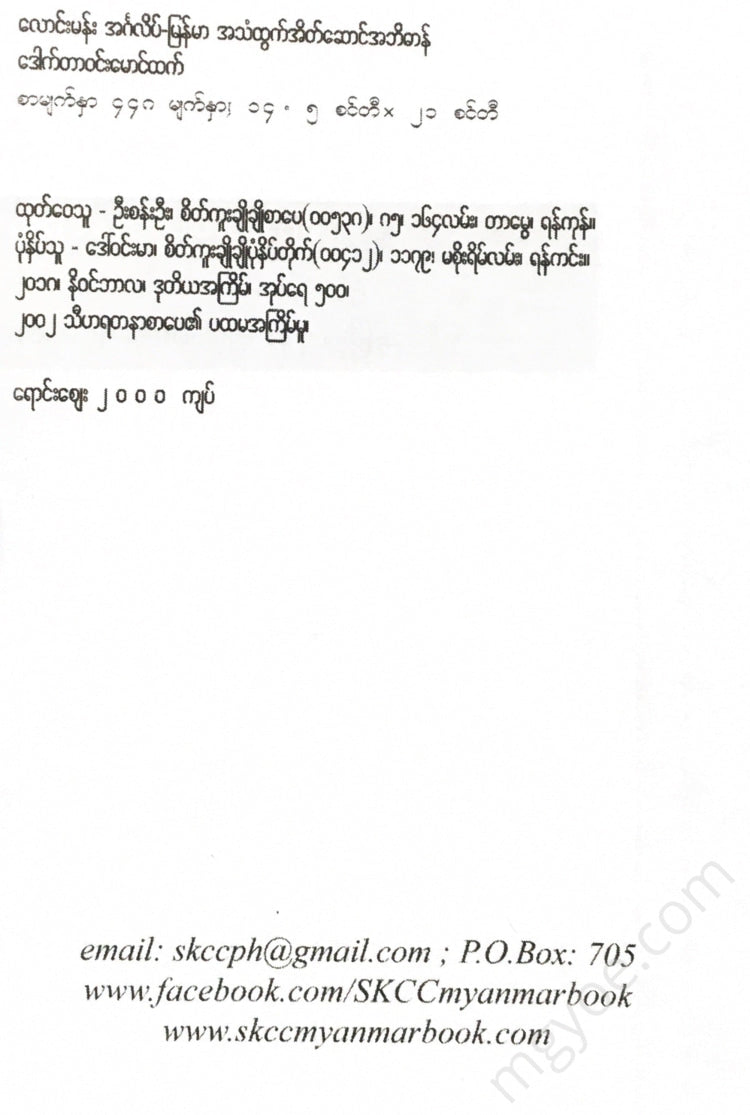 လောင်းမန်း အင်္ဂလိပ်-မြန်မာ အသံထွက်အိတ်ဆောင်အဘိဓာန်
ဒေါက်တာဝင်းမောင်ထက်
စာမျက်နှာ ၄၄၈ မျက်နှာ၊ ၁၄ . ၅ စင်တီ × ၂၁ စင်တီ
ထုတ်ဝေသူ - ဦးစန်းဦး၊ စိတ်ကူးချိုချိုစာပေ(၀၀၅၃၈)၊ ၈၅၊ ၁၆၄လမ်း၊ တာမွေ၊ ရန်ကုန်။
ပုံနှိပ်သူ - ဒေါ်ဝင်းမာ၊ စိတ်ကူးချိုချိုပုံနှိပ်တိုက်(၀၀၄၁၂)၊ ၁၁၇၉၊ မစိုးရိမ်လမ်း၊ ရန်ကင်း။
၂၀၁၈၊ နိုဝင်ဘာလ၊ ဒုတိယအကြိမ်၊ အုပ်ရေ ၅၀၀၊
၂၀၀၂ သီဟရတနာစာပေ၏ ပထမအကြိမ်မူ၊
ရောင်းဈေး ၂ ၀ ၀ ၀ ကျပ်
email: skccph@gmail.com ; P.O.Box: 705
www.facebook.com/SKCCmyanmarbook
www.skccmyanmarbook.com
mgyoe.com